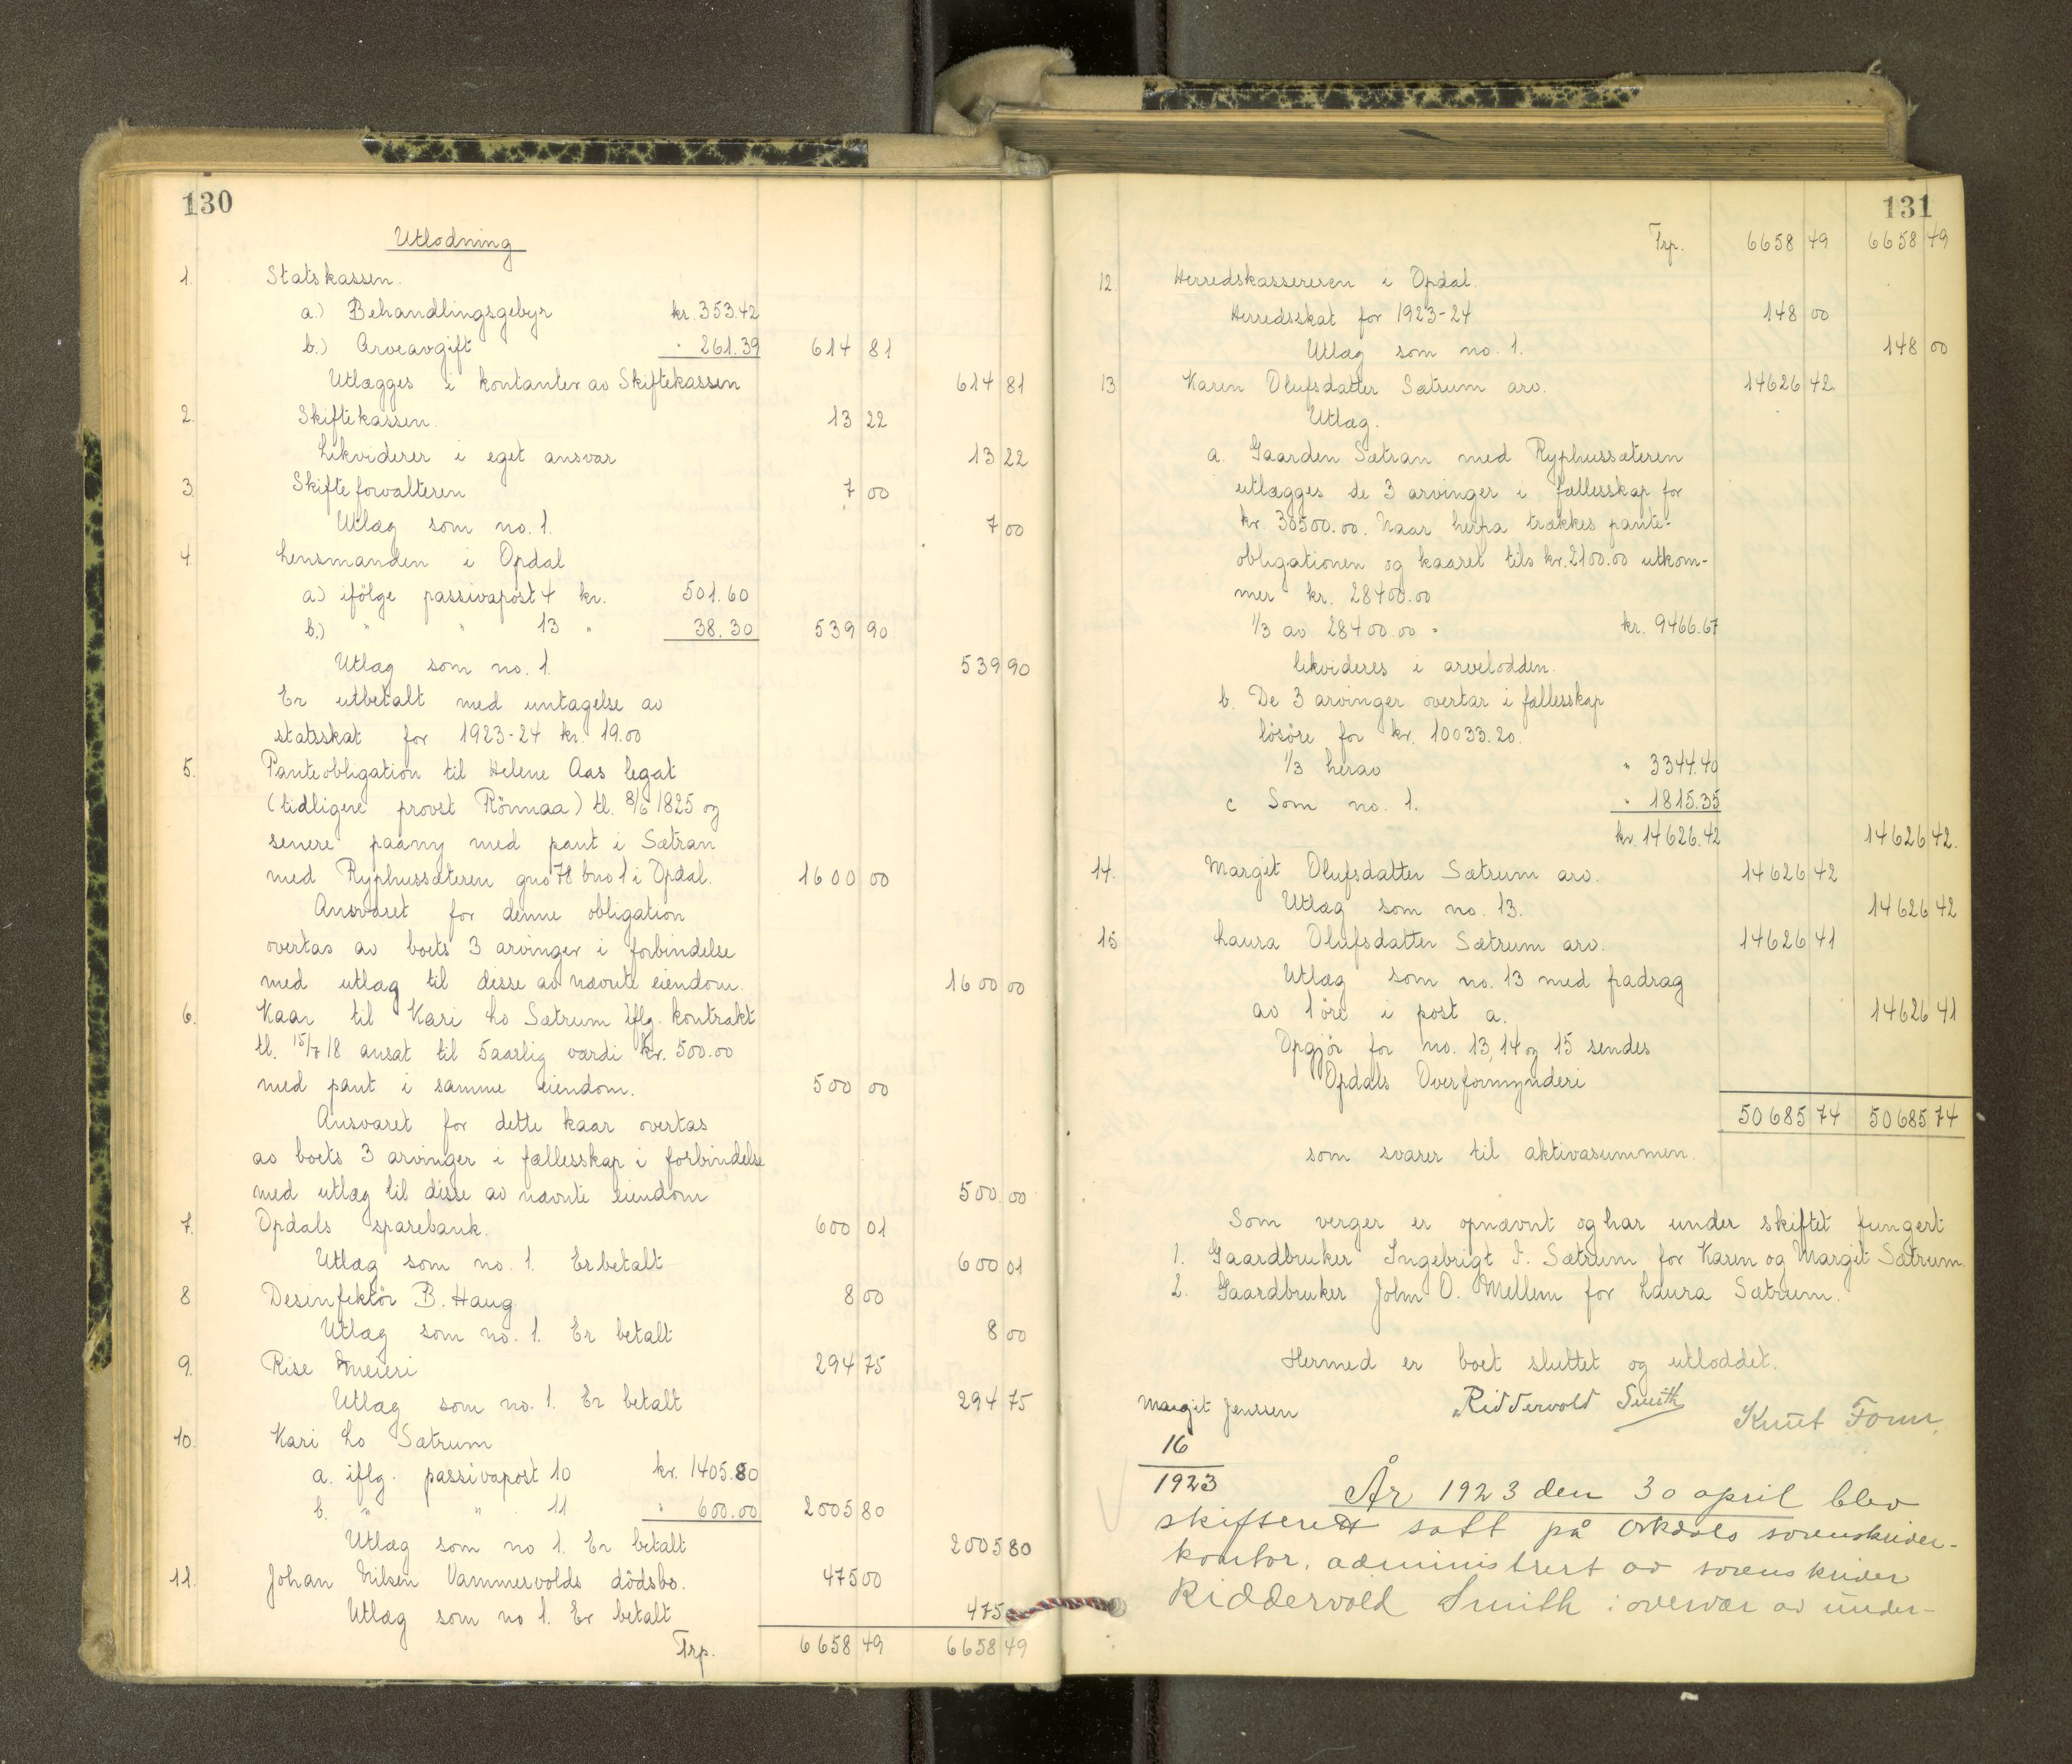 130
Utlodning
1. Statskassen.
a.) Behandlingsgebyr kr. 353.42
b.) Arveavgift " 261.39 614 81
Utlægges i kontanter av Skiftekassen 614 81
2. Skiftekassen. 13 22
Likviderer i eget ansvar 13 22
3. Skifteforvalteren 7 00
Utlæg som no. 1. 7 00
4. Lensmanden i Opdal
a) ifölge passivapost 4 kr. 501.60
b.) " " 13 " 38.30 539 90
Utlæg som no. 1. 539 90
Er utbetalt med untagelse av
statsskat for 1923-24 kr. 19.00
5. Panteobligation til Helene Aas legat
(tidligere provst Rönnaa) tl. 8/6 1825 og
senere paany med pant i Sætran
med Ryphussæteren gno 78 bno 1 i Opdal. 1600 00
Ansvaret for denne obligation
overtas av boets 3 arvinger i forbindelse
med utlæg til disse av nævnte eiendom. 1600 00
6. Kaar til Kari Lo Sætrum iflg. kontrakt
tl. 15/7 18 ansat til 5aarlig værdi kr. 500.00
med pant i samme eiendom. 500 00
Ansvaret for dette kaar overtas
av boets 3 arvinger i fællesskap i forbindelse
med utlæg til disse av nævnte eiendom 500 00
7. Opdals sparebank. 600 01
Utlæg som no. 1. Er betalt 600 01
8 Desinfektör B. Haug. 8 00
Utlæg som no. 1. Er betalt 8 00
9. Rise Meieri 294 75
Utlæg som no. 1. Er betalt 294 75
10. Kari Lo Sætrum
a. iflg. passivapost 10 kr. 1405.80
b. " " 11 " 600.00 2005 80
Utlæg som no 1. Er betalt 2005 80
11. Johan Nilsen Vammervolds dödsbo. 475 00
Utlæg som no 1. Er betalt 475
Trp. 6658 49 6658 49
131
Trp. 6658 49 6658 49
12. Herredskassereren i Opdal.
Herredsskat for 1923-24 148 00
Utlæg som no. 1. 148 00
13 Karen Olufsdatter Sætrum arv. 14626 42
Utlæg.
a. Gaarden Sætran med Ryphussæteren
utlægges de 3 arvinger i fællesskap for
kr. 30500.00. Naar herfra trækkes pante-
obligationen og kaaret tils kr. 2100.00 utkom-
mer kr. 28400.00
1/3 av 28400.00 " kr. 9466.67
likvideres i arvelodden.
b. De 3 arvinger overtar i fællesskap
lösöre for kr. 10033.20.
1/3 herav " 3344.40
c Som no. 1. " 1815.35
kr. 14626.42 14626 42.
14. Margit Olufsdatter Sætrum arv. 14626 42
Utlæg som no. 13. 14626 42
15 Laura Olufsdatter Sætrum arv. 14626 41
Utlæg som no. 13 med fradrag
av 1 öre i post a. 14626 41
Opgjör for no. 13, 14 og 15 sendes
Opdals Overformynderi
50685 74 50685 74
som svarer til aktivasummen.
Som verger er opnævnt og har under skiftet fungert
1. Gaardbruker Ingebrigt I. Sætrum for Karen og Margit Sætrum.
2. Gaardbruker John O. Mellem for Laura Sætrum.
Hermed er boet sluttet og utloddet.
Margit Jenssen Riddervold Smith Knut
16
1923
År 1923 den 30 april blev
skifterett satt på Orkdals sorenskriver-
kontor, administrert av sorenskriver
Riddervold Smith i overvær av under-